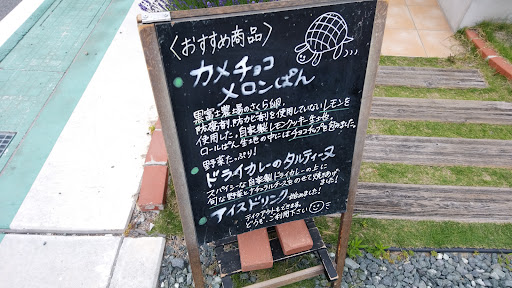 〈おすすめ商品〉
カメチョコ
メロンぱん
黒富士農場のさくら卵、
防腐剤、防カビ剤を使用していないレモンを
使用した、自家製レモンクッキー生地を、
ロールぱん生地の中にはチョコチップを包みました。
野菜たっぷり！
ドライカレーのタルティーヌ
スパイシーな自家製ドライカレーの上に
旬な野菜とナチュラルチーズをのせて焼きあげ
ました！
アイスドリンク始めました！
テイクアウトもできます。
どうぞ、ご利用下さい